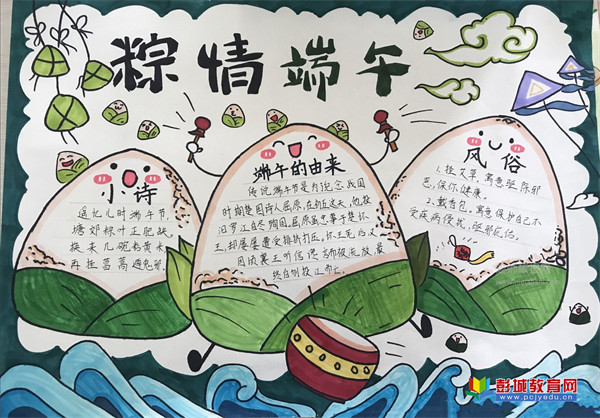 粽情端午
小诗
遥忆儿时端午节,
塘郊粽叶正肥缺。
换来几碗杂黄米
再挂菖蒿避鬼邪。
端午的由来
传说端午节是为纪念战国
时期楚国诗人屈原,在的这天,他投
汨罗江自尽殉国。屈原虽忠事于楚怀
王,却屡屡遭受排挤打压,怀王死后又
因顷襄王听信谗言而被流放,最
终自刎投江而亡。
风俗
1.挂艾草,寓意驱
恶,保你健康。
2.戴香包,寓意保护自己不
受疾病侵扰,驱邪
彭城教育网
www.pcjyedu.cn